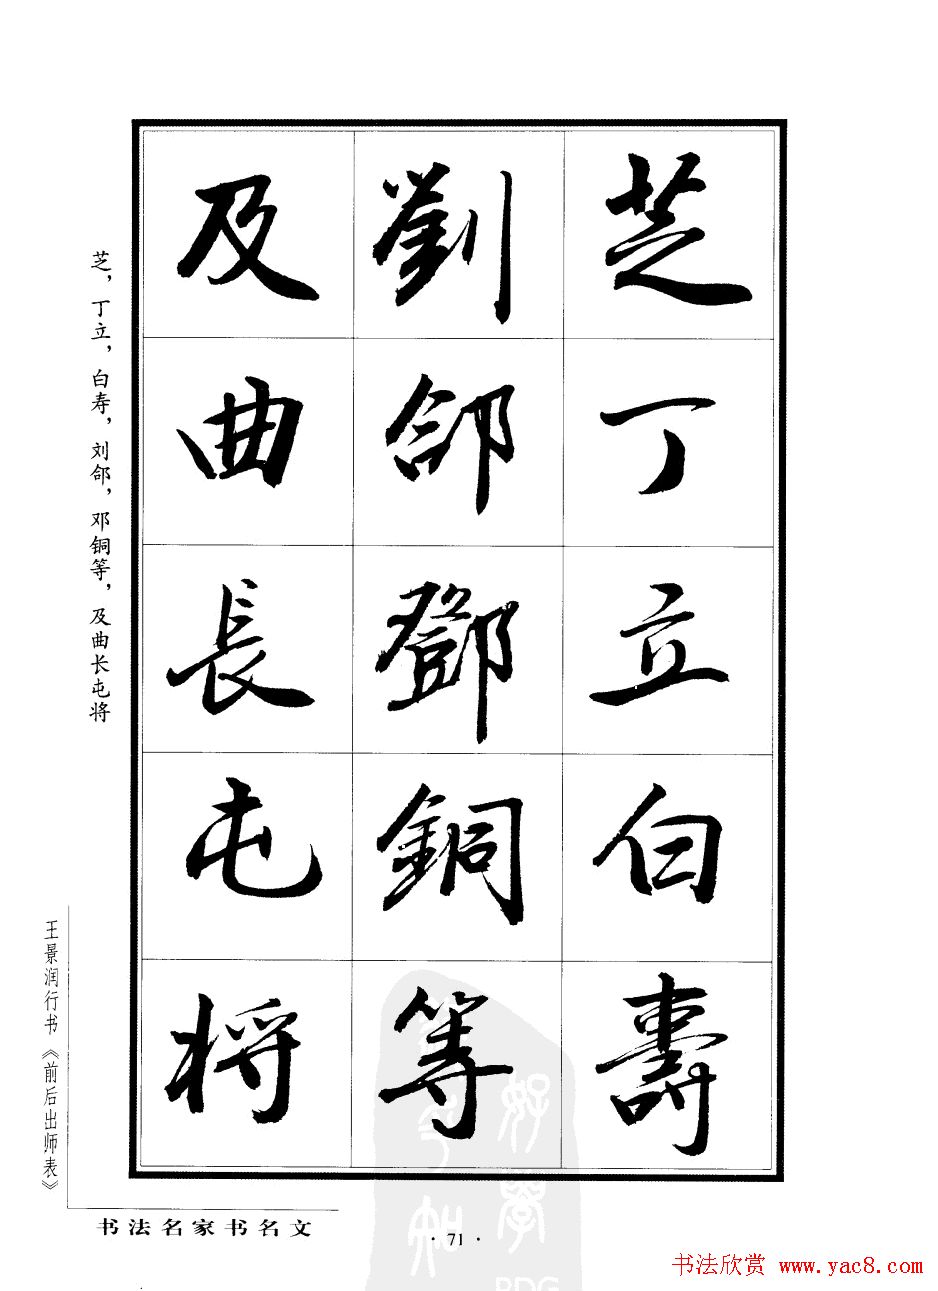 芝丁立白壽
劉郃鄧銅等
及曲長屯将
芝，丁立，白寿，刘郃，邓铜等，及曲长屯将
王景润行书《前后出师表》
书法名家书名文
· 71 ·
书法欣赏 www.yac8.com